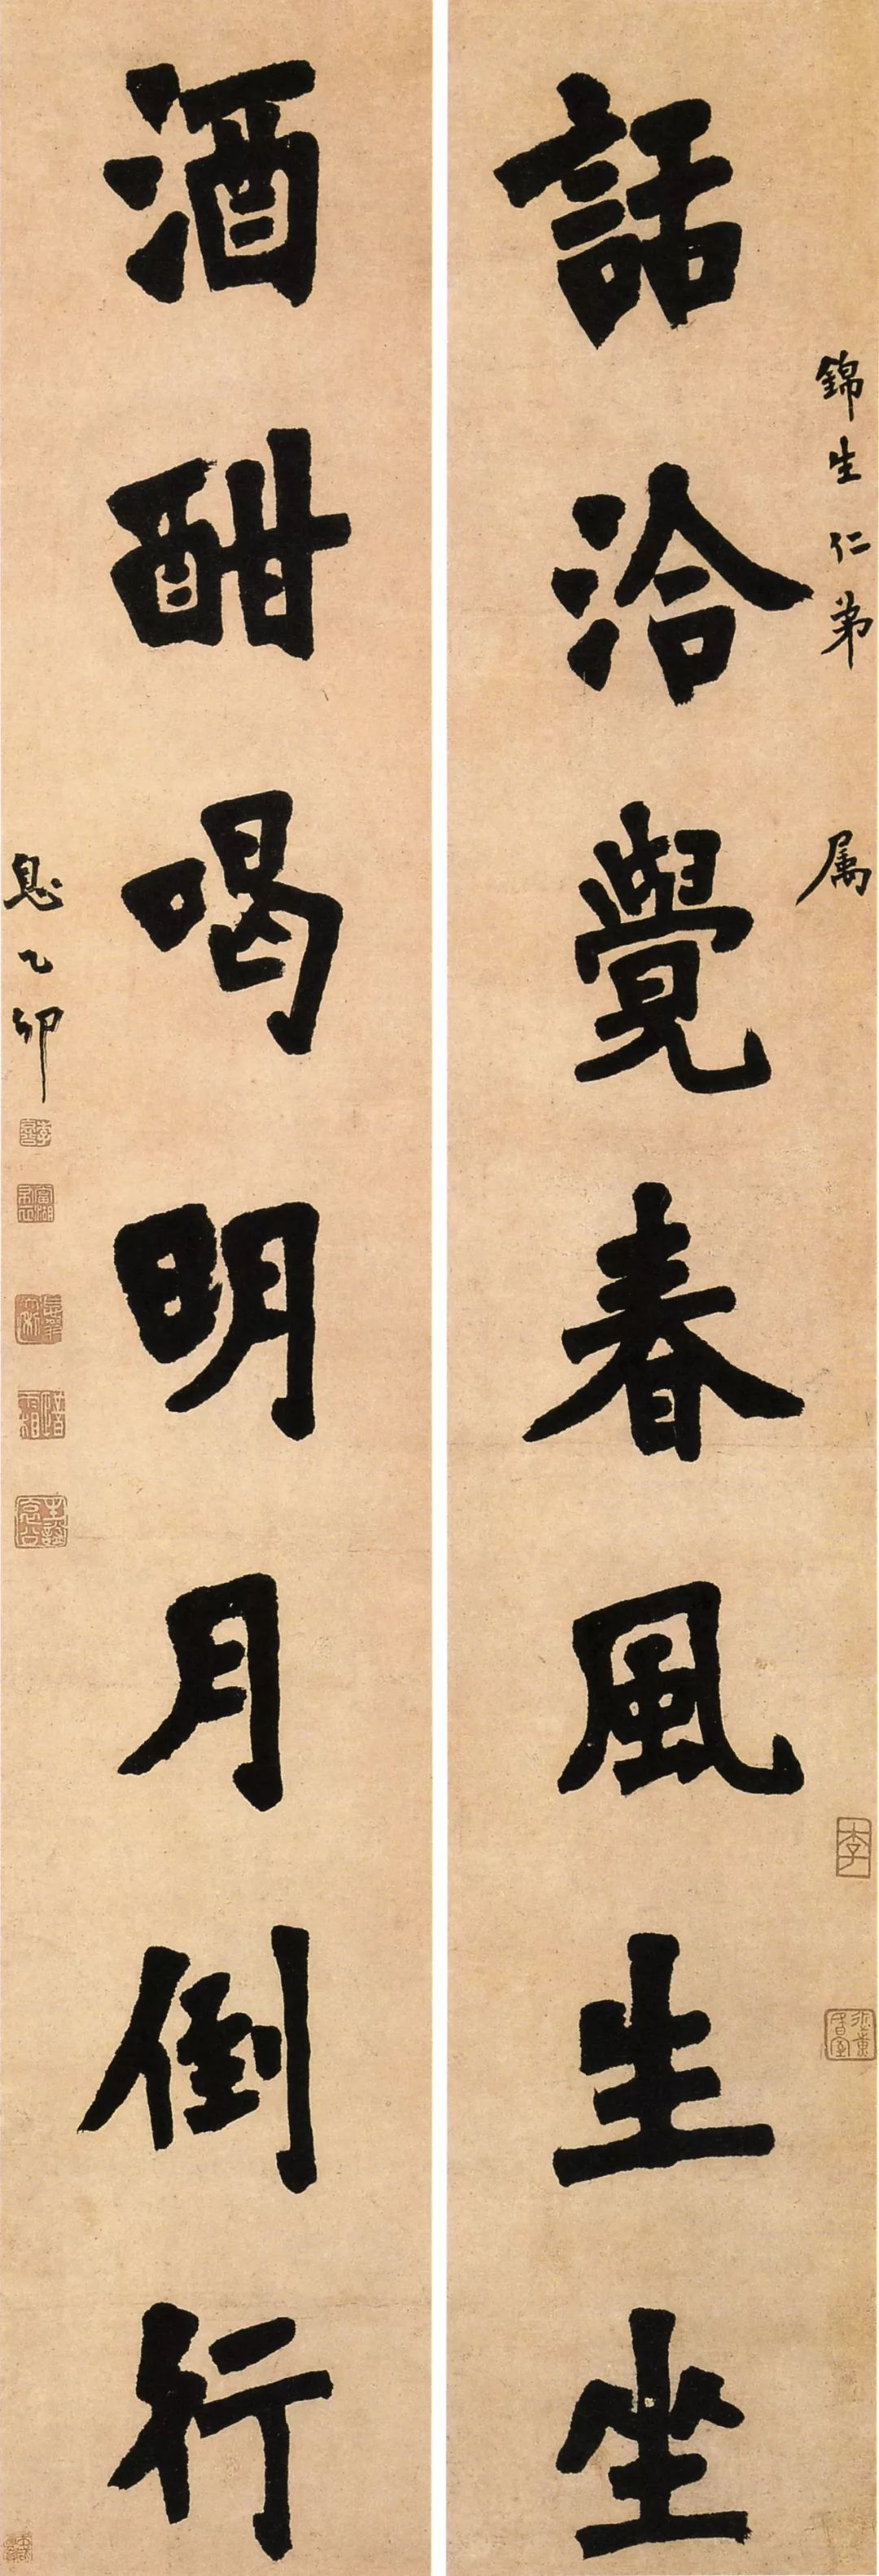 錦生仁弟 属
話洽覺春風生坐
酒酣喝明月倒行
息乙卯
李